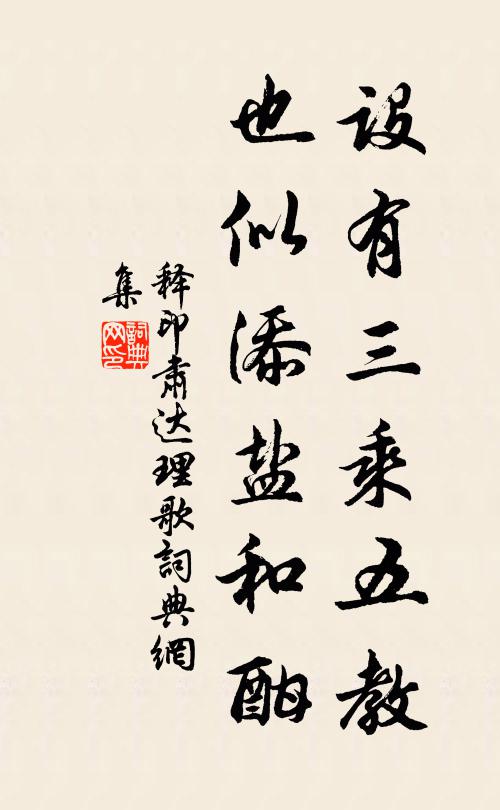 设有三乘五教
也似添盐和酣
释印肃达理歌詞典網
集
詞典网印